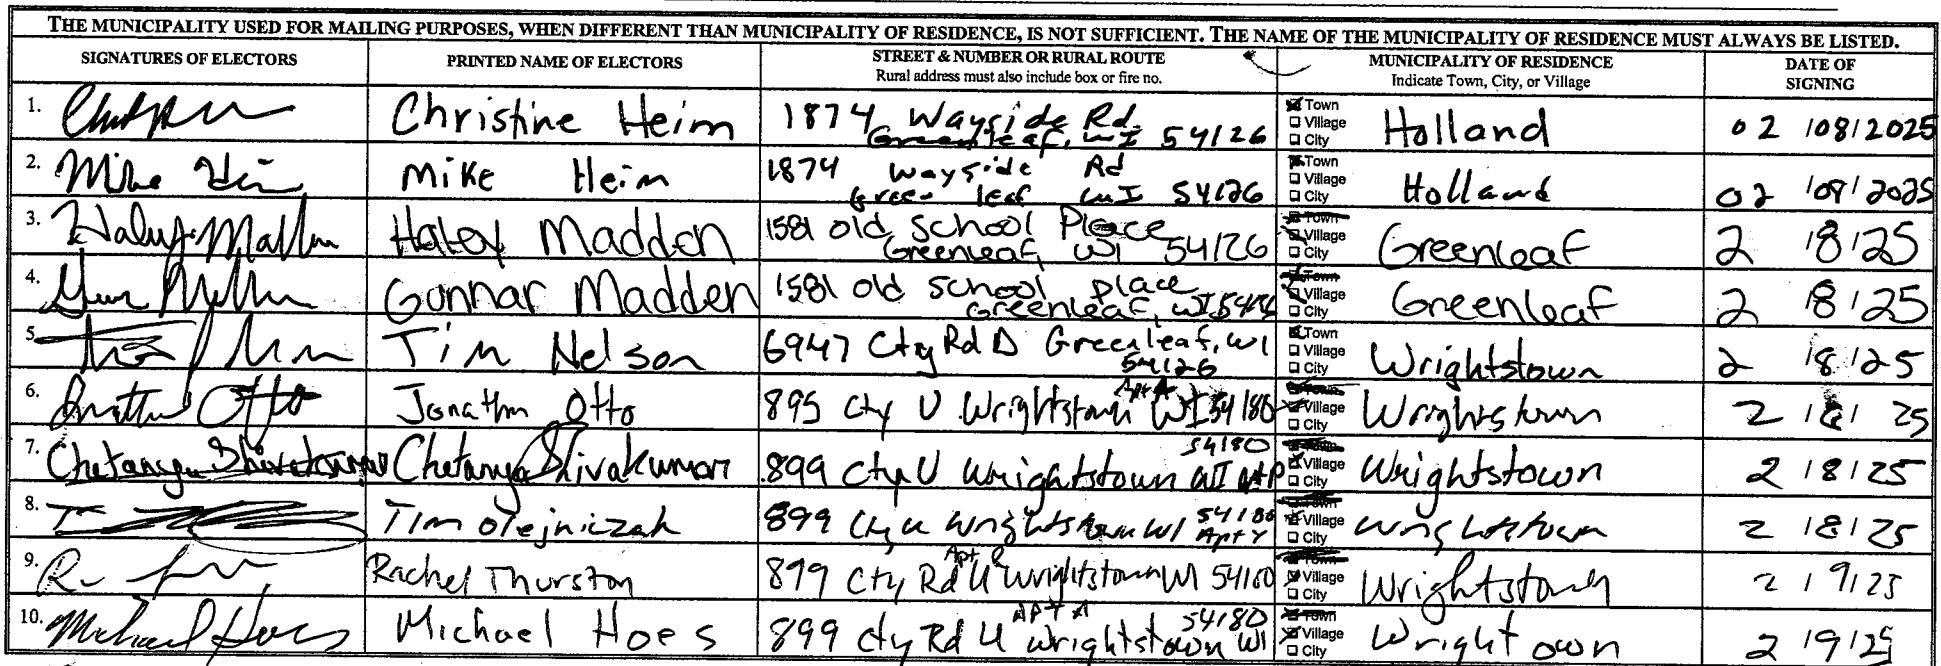 THE MUNICIPALITY USED FOR MAILING PURPOSES, WHEN DIFFERENT THAN MUNICIPALITY OF RESIDENCE, IS NOT SUFFICIENT. THE NAME OF THE MUNICIPALITY OF RESIDENCE MUST ALWAYS BE LISTED.
SIGNATURES OF ELECTORS
PRINTED NAME OF ELECTORS
STREET & NUMBER OR RURAL ROUTE
Rural address must also include box or fire no.
MUNICIPALITY OF RESIDENCE
Indicate Town, City, or Village
DATE OF
SIGNING
1. Christine Heim 1874 Wayside Rd.
Greenleaf, WI 54126
Town
Village
City
Holland 02/08/2025
2. Mike Heim Mike Heim 1874 Wayside Rd
Greenleaf WI 54126
Town
Village
City
Holland 02/08/2025
3. Haley Madden Haley Madden 1581 old School Place
Greenleaf, WI 54126
Town
Village
City
Greenleaf 2/8/25
4. Gunnar Madden 1581 old School place
Greenleaf, WI
Town
Village
City
Greenleaf 2/8/25
5. Tim Nelson 6947 Cty Rd D Greenleaf, WI
54126
Town
Village
City
Wrightstown 2/8/25
6. Otto Jonathn Otto 895 Cty U Wrightstown WI 54180
Apt A
Town
Village
City
Wrightstown 2/8/25
7. Chetanya Shivakumar Chetanya Shivakumar 899 Cty U Wrightstown WI
54180
Town
Village
City
Wrightstown 2/8/25
8. Tim Olejniczak 899 Cty U Wrightstown WI 54180
Apt Y
Town
Village
City
Wrightstown 2/8/25
9. Rachel Thurston 899 Cty Rd U Wrightstown WI 54180
Apt
Town
Village
City
Wrightstown 2/9/25
10. Michael Hoes Michael Hoes 899 Cty Rd U Wrightstown WI
APT A 54180
Town
Village
City
Wrightown 2/9/25